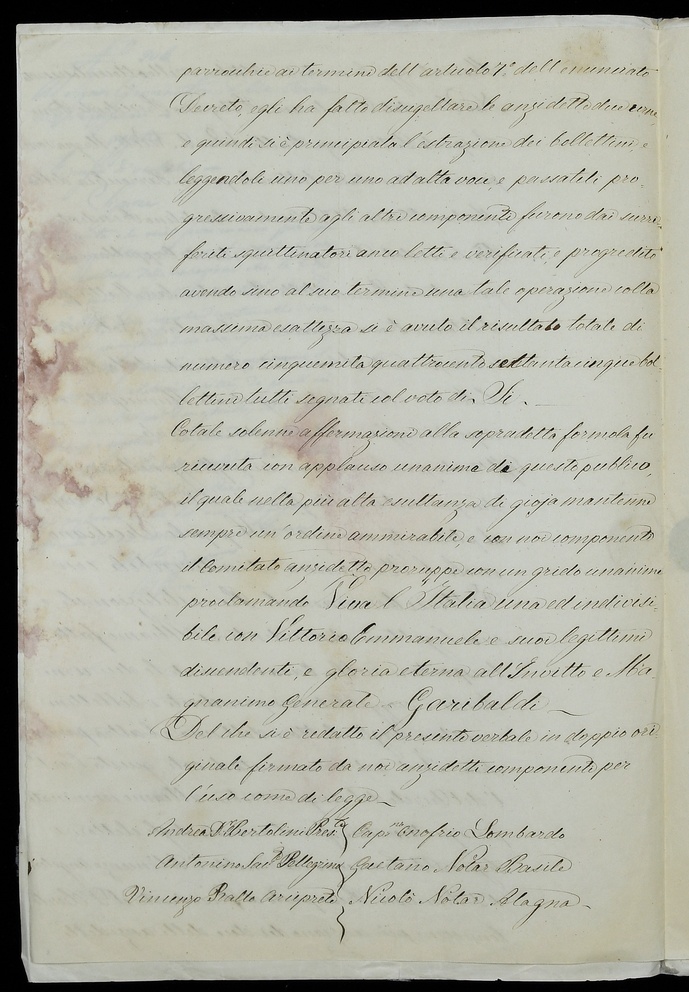 parrocchie ai termini dell'articolo 7.° dell'enunciato
Decreto, egli ha fatto disugellare le anzidette due urne
e quindi si è principiata l'estrazione dei bollettini, e
leggendoli uno per uno ad alta voce, e passatili pro-
gressivamente agli altri componenti furono dai surri-
feriti squittinatori anco letti e verificati, e progredito
avendo sino al suo termine una tale operazione colla
massima esattezza si è avuto il risultato totale di
numero cinquemila quattrocento settantacinque bol-
lettini tutti segnati col voto di Si. —
Cotale solenne affermazione alla sopradetta formola fu
ricevuta con applauso unanime di questo publico,
il quale nella più alta esultanza di gioja mantenne
sempre un'ordine ammirabile, e con noi componenti
il Comitato anzidetto proruppe con un grido unanime
proclamando Viva l'Italia una ed indivisi-
bile con Vittorio Emmanuele e suoi legittimi
discendenti, e gloria eterna all'Invitto e Ma-
gnanimo Generale — Garibaldi —
Del che si è redatto il presente verbale in doppio ori-
ginale firmato da noi anzidetti componenti per
l'uso come di legge —
Andrea Dr Bertolini Presi.te } Cap.no Onofrio Lombardo
Antonino Pellegrino } Gaetano Notar Basile
Vincenzo Ballo Arciprete } Nicolò Notar Alagna —